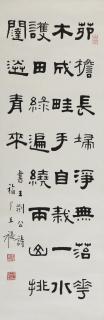 茆檐長埽淨無苔花
木成畦手自栽一水
護田將綠繞兩山排
闥送青來
書王荊公詩
福厂王禔